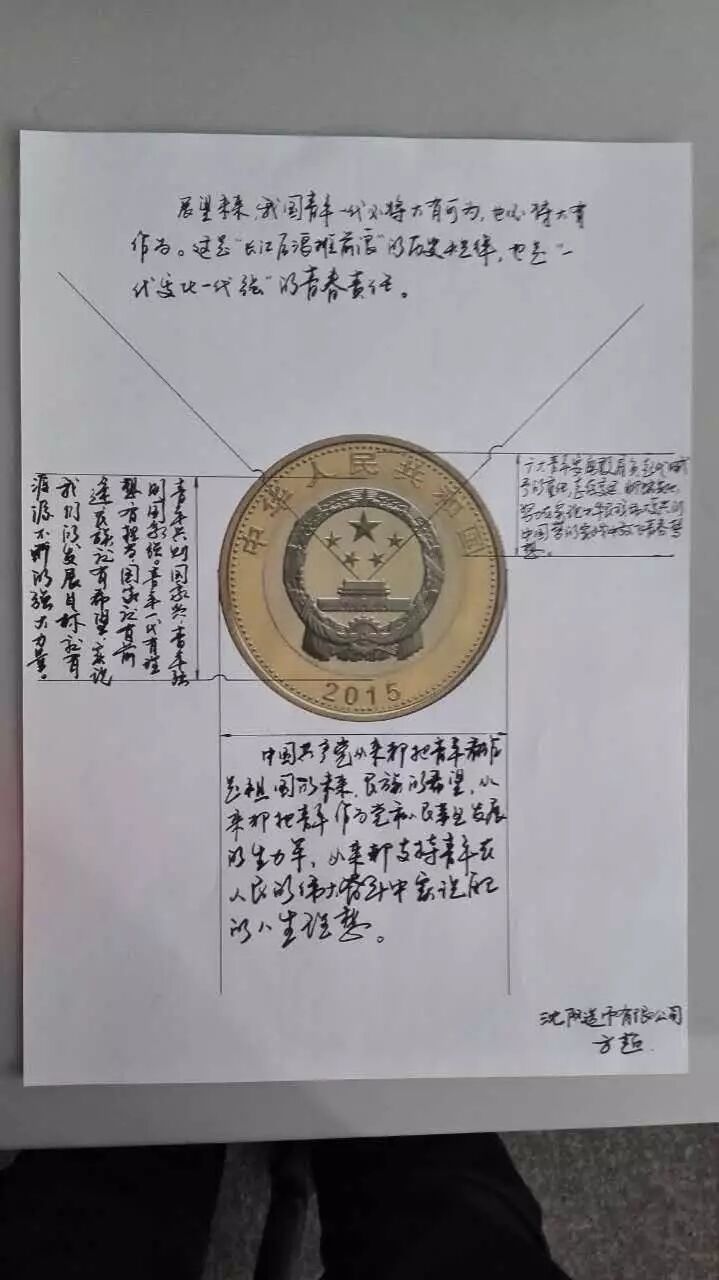 展望未来,我国青年一代必将大有可为,也必将大有
作为。这是“长江后浪推前浪”的历史规律,也是“一
代更比一代强”的青春责任。
青年兴则国家兴,青年强
则国家强。青年一代有理
想有担当,国家就有前
途,民族就有希望,实现
我们的发展目标就有
源源不断的强大力量。
中华人民共和国
2015
广大青年要勇敢肩负起时代赋
予的重任,志存高远,脚踏实地,
努力在实现中华民族伟大复兴的
中国梦的实践中放飞青春梦
想。
中国共产党从来都把青年看作
是祖国的未来、民族的希望,从
来都把青年作为党和人民事业发展
的生力军,从来都支持青年在
人民的伟大奋斗中实现自己
的人生理想。
沈阳造币有限公司
方超